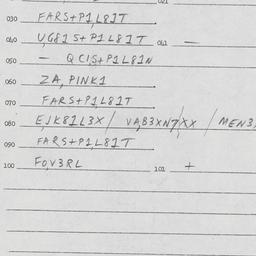 021
030 FARS+P1,L81T
040 UG81S+P1L81T 041 —
050 - QCIS+P1L81N
060 ZA, PINK1
070 FARS+P1L81T
080 EJK81L3X/ VAB3XN7/XX / MEN3
090 FARS+P1,L81T
100 FOV3RL 101 +